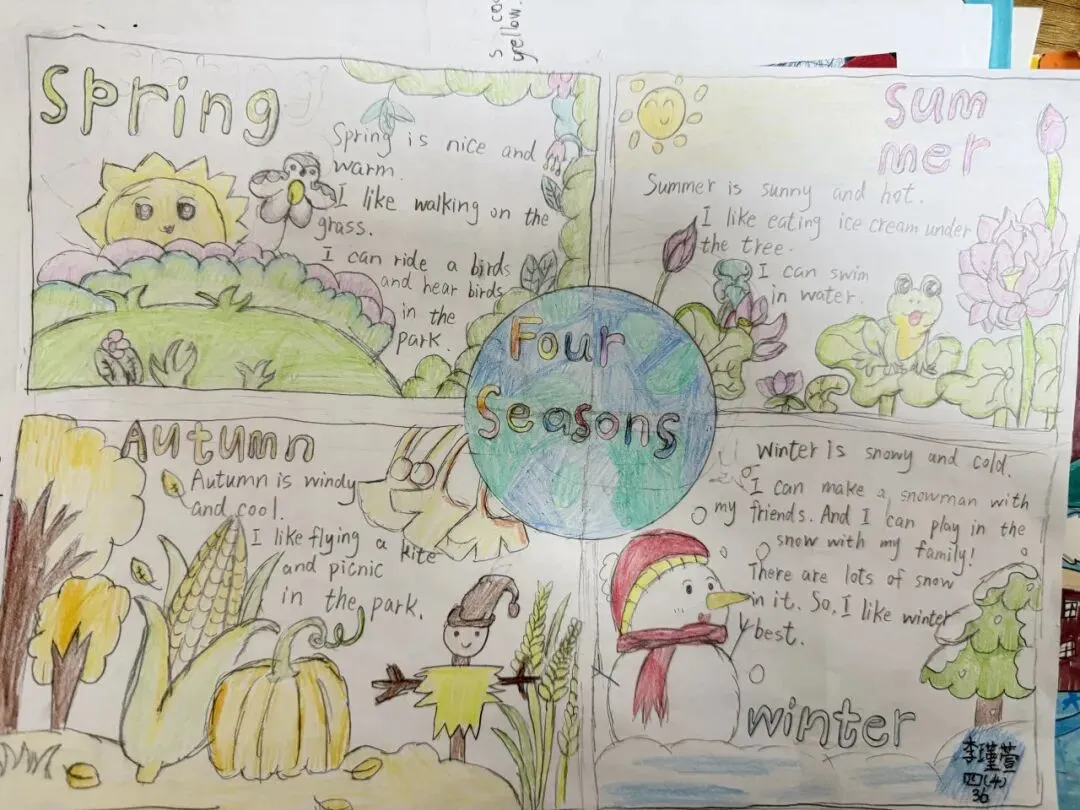 Spring
Spring is nice and
warm.
I like walking on the
grass.
I can ride a birds
and hear birds
in the
park.
Sum
mer
Summer is sunny and hot.
I like eating ice cream under
the tree.
I can swim
in water.
Four
Seasons
Autumn
Autumn is windy
and cool.
I like flying a kite
and picnic
in the park.
Winter is snowy and cold.
I can make a snowman with
my friends. And I can play in the
snow with my family!
There are lots of snow
in it. So, I like winter
best.
winter
李瑾萱
四(4)
36
yellow.